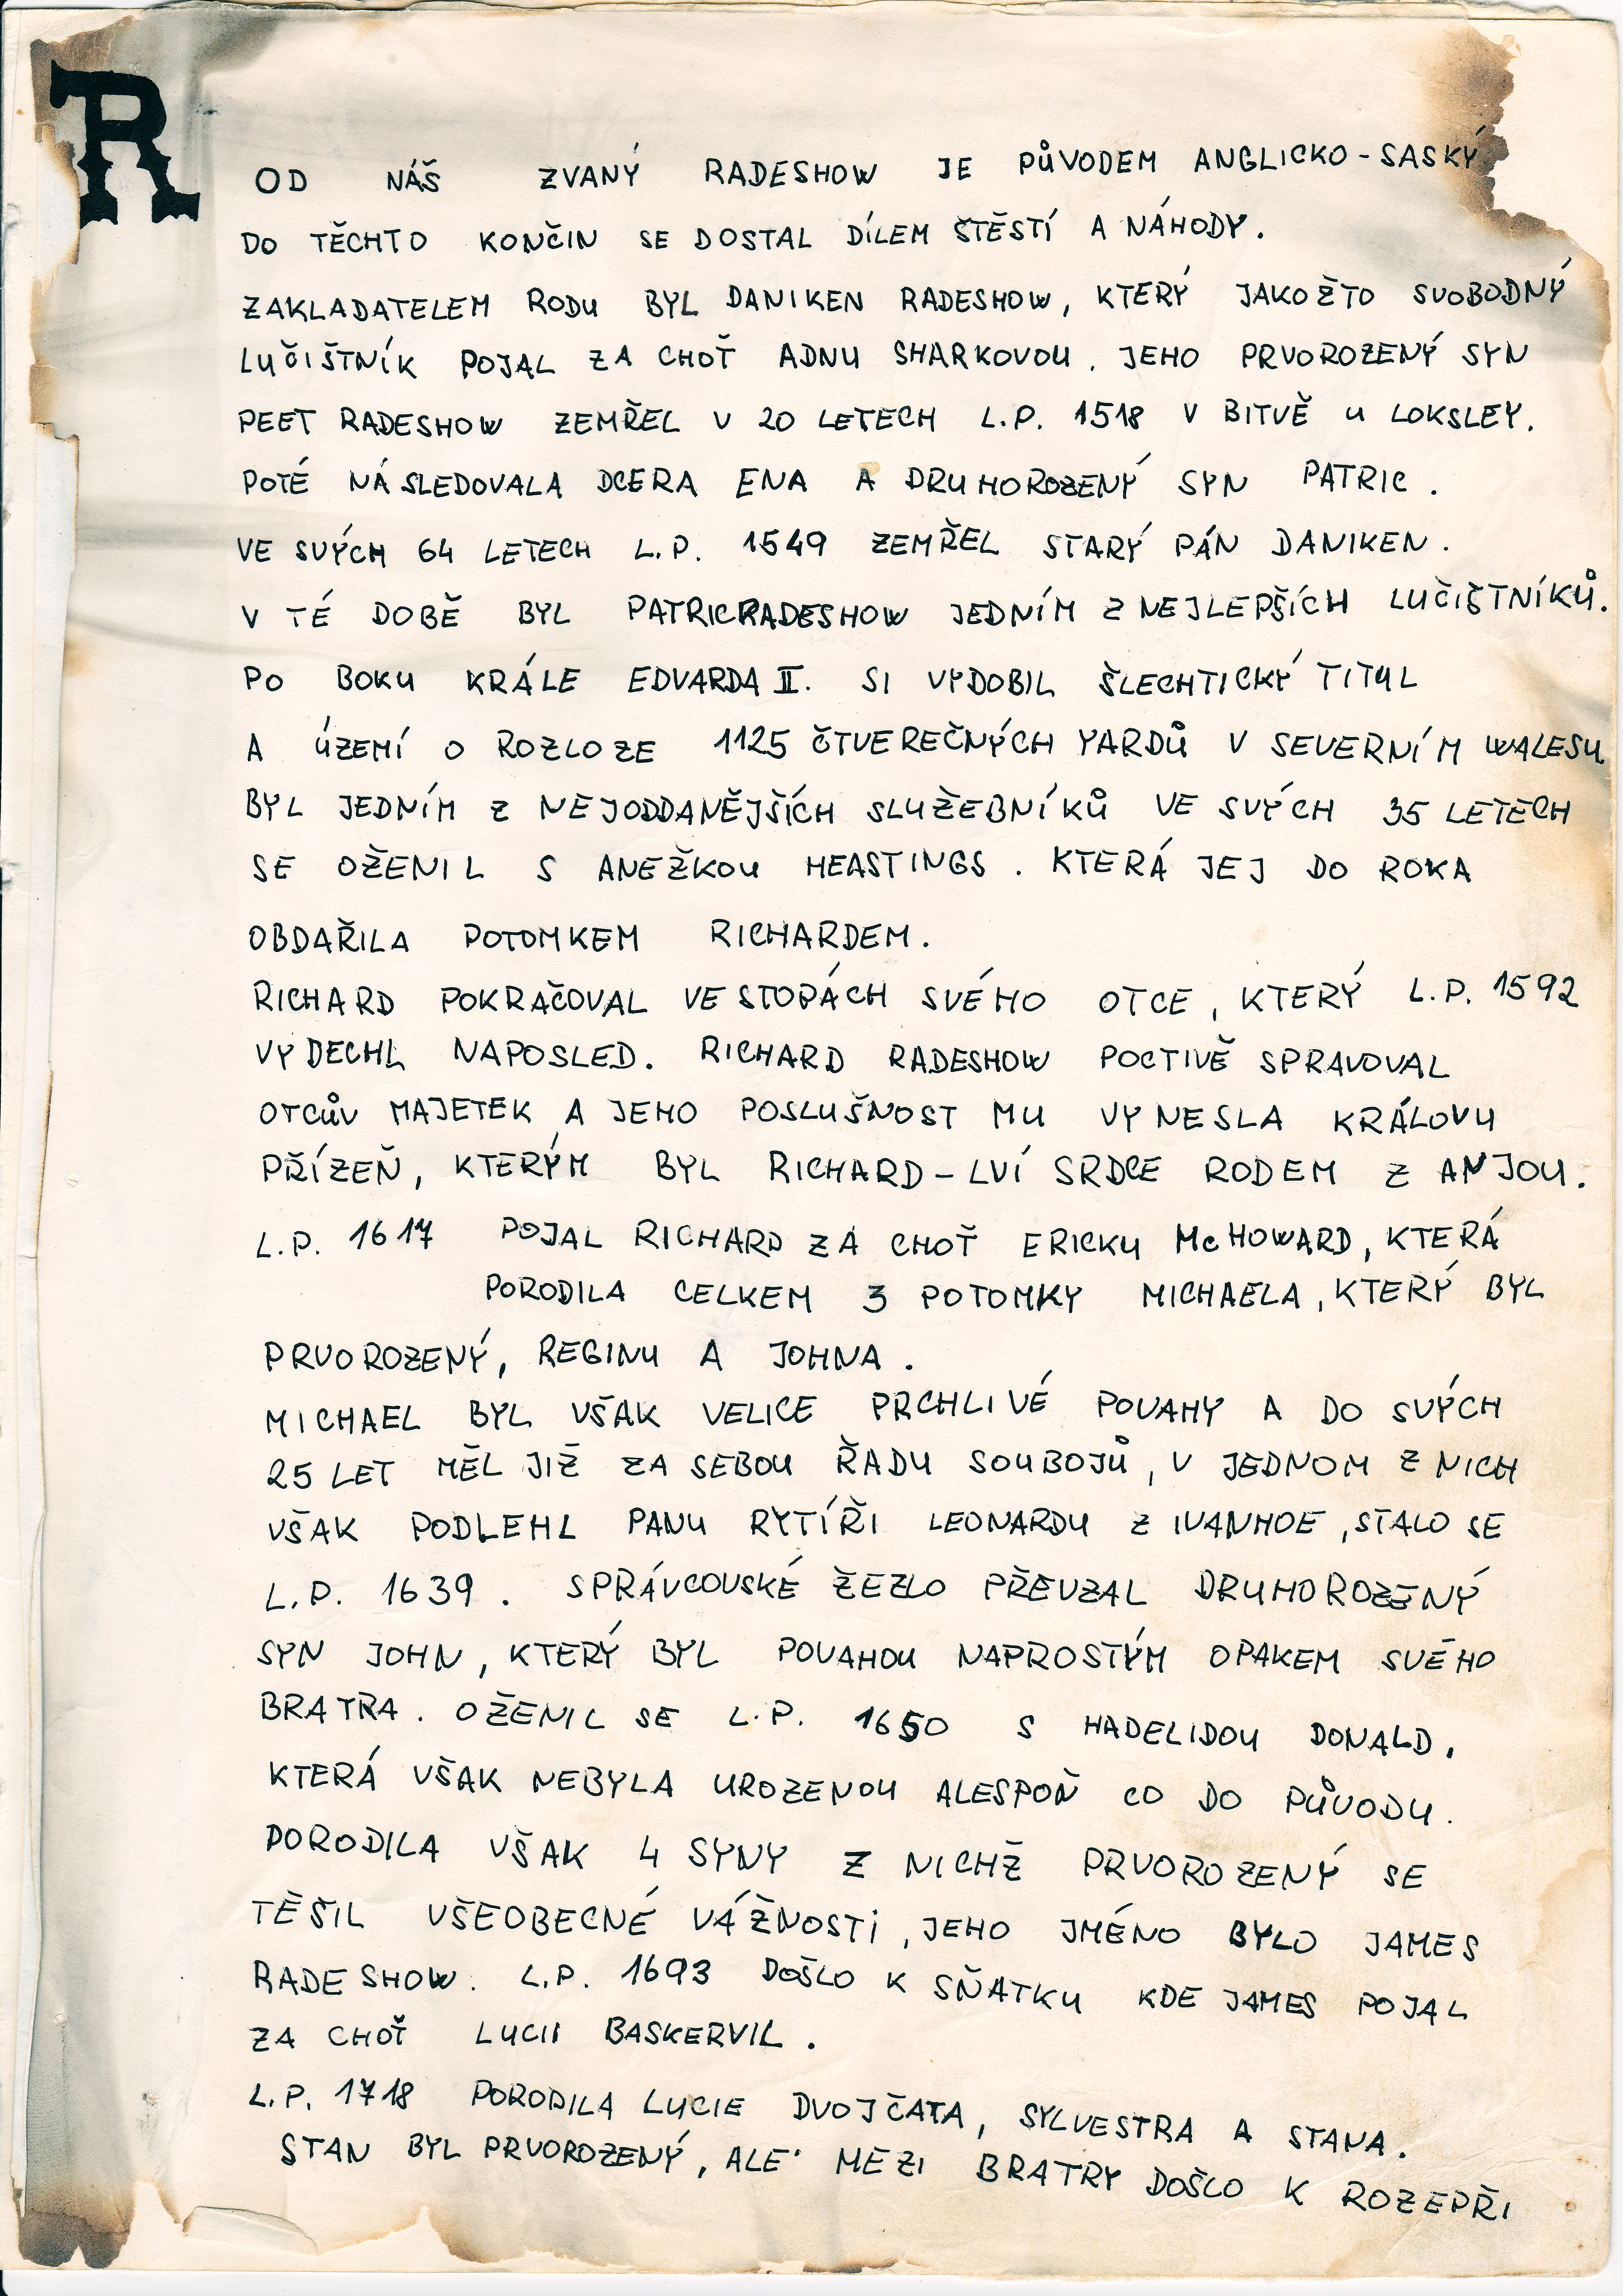 ROD NÁŠ ZVANÝ RADESHOW JE PŮVODEM ANGLICKO-SASKÝ
DO TĚCHTO KONČIN SE DOSTAL DÍLEM ŠTĚSTÍ A NÁHODY.
ZAKLADATELEM RODU BYL DANIKEN RADESHOW, KTERÝ JAKOŽTO SVOBODNÝ
LUČIŠTNÍK POJAL ZA CHOŤ ADNU SHARKOVOU. JEHO PRVOROZENÝ SYN
PEET RADESHOW ZEMŘEL V 20 LETECH L.P. 1518 V BITVĚ U LOKSLEY.
POTÉ NÁSLEDOVALA DCERA ENA A DRUHOROZENÝ SYN PATRIC.
VE SVÝCH 64 LETECH L.P. 1549 ZEMŘEL STARÝ PÁN DANIKEN.
V TÉ DOBĚ BYL PATRIC RADESHOW JEDNÍM Z NEJLEPŠÍCH LUČIŠTNÍKŮ.
PO BOKU KRÁLE EDVARDA II. SI VYDOBIL ŠLECHTICKÝ TITUL
A ÚZEMÍ O ROZLOZE 1125 ČTVEREČNÝCH YARDŮ V SEVERNÍM WALESU
BYL JEDNÍM Z NEJODDANĚJŠÍCH SLUŽEBNÍKŮ VE SVÝCH 35 LETECH
SE OŽENIL S ANEŽKOU HEASTINGS. KTERÁ JEJ DO ROKA
OBDAŘILA POTOMKEM RICHARDEM.
RICHARD POKRAČOVAL VE STOPÁCH SVÉHO OTCE, KTERÝ L.P. 1592
VYDECHL NAPOSLED. RICHARD RADESHOW POCTIVĚ SPRAVOVAL
OTCŮV MAJETEK A JEHO POSLUŠNOST MU VYNESLA KRÁLOVU
PŘÍZEŇ, KTERÝM BYL RICHARD-LVÍ SRDCE RODEM Z ANJOU.
L.P. 1617 POJAL RICHARD ZA CHOŤ ERICKU McHOWARD, KTERÁ
PORODILA CELKEM 3 POTOMKY MICHAELA, KTERÝ BYL
PRVOROZENÝ, REGINU A JOHNA.
MICHAEL BYL VŠAK VELICE PRCHLIVÉ POVAHY A DO SVÝCH
25 LET MĚL JIŽ ZA SEBOU ŘADU SOUBOJŮ, V JEDNOM Z NICH
VŠAK PODLEHL PANU RYTÍŘI LEONARDU Z IVANHOE, STALO SE
L.P. 1639. SPRÁVCOVSKÉ ŽEZLO PŘEVZAL DRUHOROZENÝ
SYN JOHN, KTERÝ BYL POVAHOU NAPROSTÝM OPAKEM SVÉHO
BRATRA. OŽENIL SE L.P. 1650 S HADELIDOU DONALD,
KTERÁ VŠAK NEBYLA UROZENOU ALESPOŇ CO DO PŮVODU.
PORODILA VŠAK 4 SYNY Z NICHŽ PRVOROZENÝ SE
TĚŠIL VŠEOBECNÉ VÁŽNOSTI, JEHO JMÉNO BYLO JAMES
RADESHOW. L.P. 1693 DOŠLO K SŇATKU KDE JAMES POJAL
ZA CHOŤ LUCII BASKERVIL.
L.P. 1718 PORODILA LUCIE DVOJČATA, SYLVESTRA A STANA.
STAN BYL PRVOROZENÝ, ALE MEZI BRATRY DOŠLO K ROZEPŘI